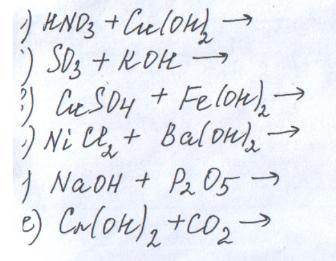 ) HNO₃ + Cu(OH)₂ →
) SO₃ + KOH →
) CuSO₄ + Fe(OH)₂ →
) NiCl₂ + Ba(OH)₂ →
) NaOH + P₂O₅ →
е) Cu(OH)₂ + CO₂ →